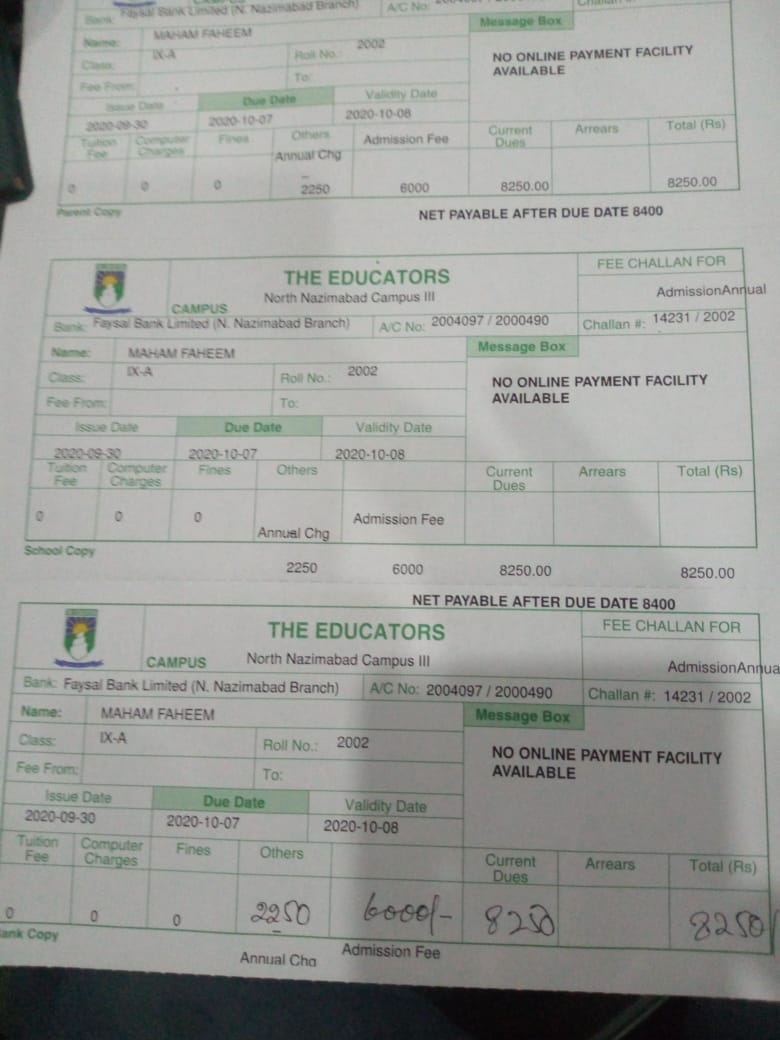 Bank: Faysal Bank Limited (N. Nazimabad Branch) A/C No: 2004097 / 2000490
Message Box
Name: MAHAM FAHEEM
Class: IX-A Roll No.: 2002
NO ONLINE PAYMENT FACILITY
AVAILABLE
Fee From: To:
Issue Date Due Date Validity Date
2020-09-30 2020-10-07 2020-10-08
Tuition Fee Computer Charges Fines Others Admission Fee Current Dues Arrears Total (Rs)
Annual Chg
0 0 0 2250 6000 8250.00 8250.00
Parent Copy NET PAYABLE AFTER DUE DATE 8400
THE EDUCATORS FEE CHALLAN FOR
CAMPUS North Nazimabad Campus III AdmissionAnnual
Bank: Faysal Bank Limited (N. Nazimabad Branch) A/C No: 2004097 / 2000490 Challan #: 14231 / 2002
Name: MAHAM FAHEEM Message Box
Class: IX-A Roll No.: 2002
NO ONLINE PAYMENT FACILITY
AVAILABLE
Fee From: To:
Issue Date Due Date Validity Date
2020-09-30 2020-10-07 2020-10-08
Tuition Fee Computer Charges Fines Others Current Dues Arrears Total (Rs)
0 0 0 Annual Chg Admission Fee
School Copy
2250 6000 8250.00 8250.00
NET PAYABLE AFTER DUE DATE 8400
THE EDUCATORS FEE CHALLAN FOR
CAMPUS North Nazimabad Campus III AdmissionAnnua
Bank: Faysal Bank Limited (N. Nazimabad Branch) A/C No: 2004097 / 2000490 Challan #: 14231 / 2002
Name: MAHAM FAHEEM Message Box
Class: IX-A Roll No.: 2002
NO ONLINE PAYMENT FACILITY
AVAILABLE
Fee From: To:
Issue Date Due Date Validity Date
2020-09-30 2020-10-07 2020-10-08
Tuition Fee Computer Charges Fines Others Current Dues Arrears Total (Rs)
0 0 0 2250 6000/- 8250 8250/
ank Copy
Annual Chg Admission Fee